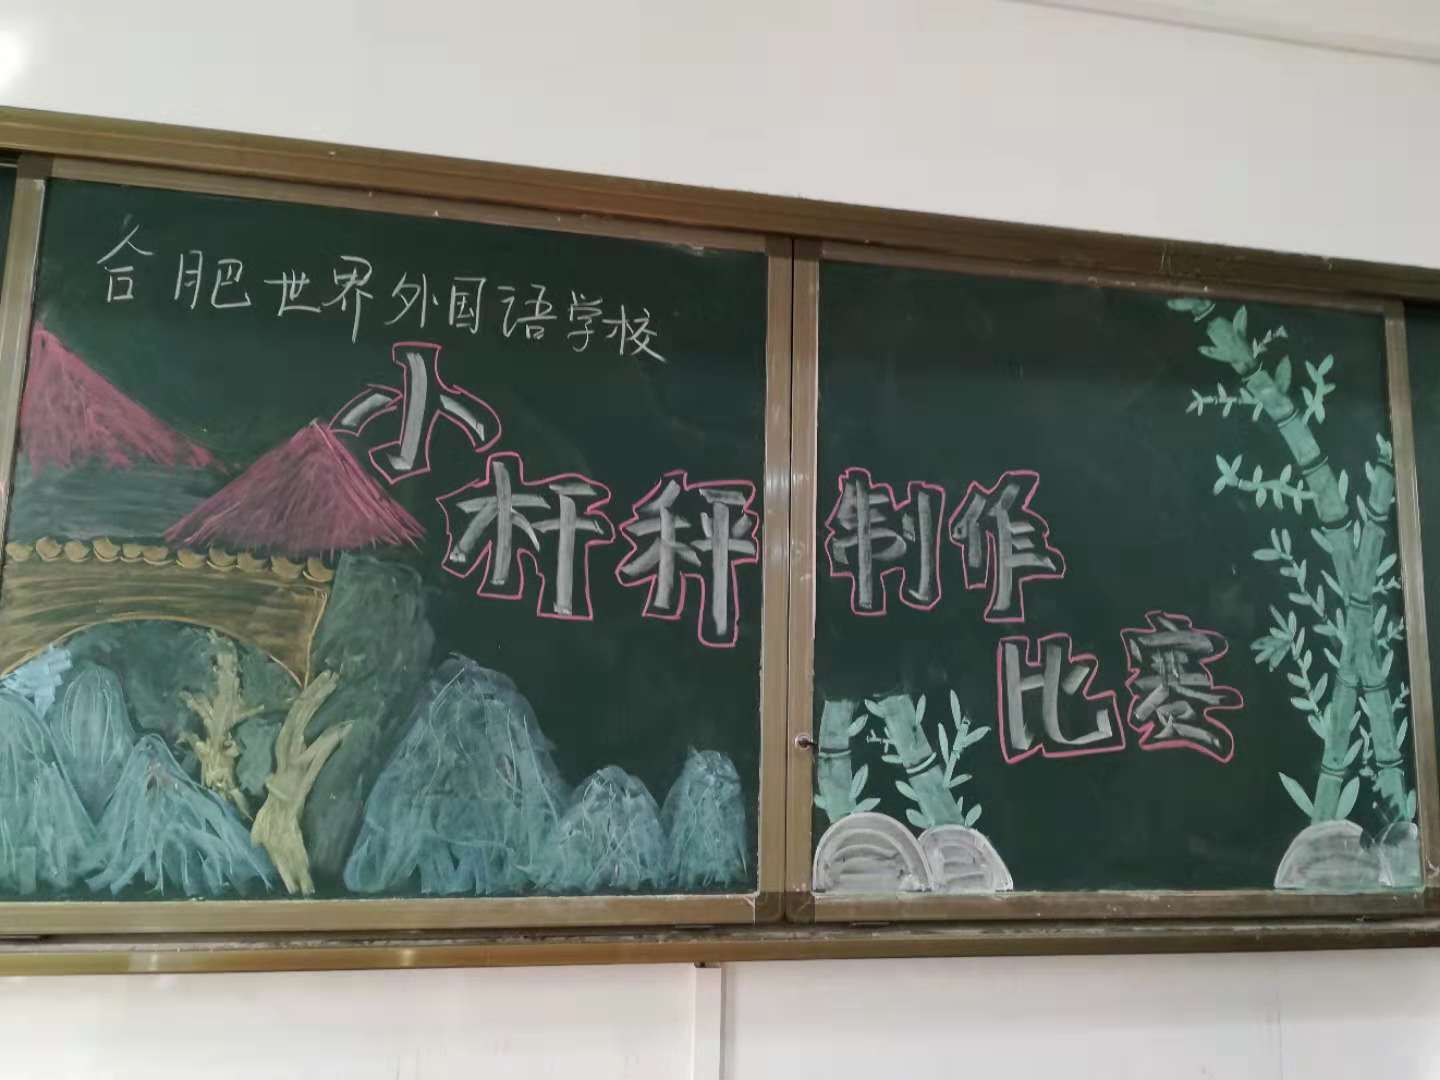 合肥世界外国语学校
小杆秤制作
比赛